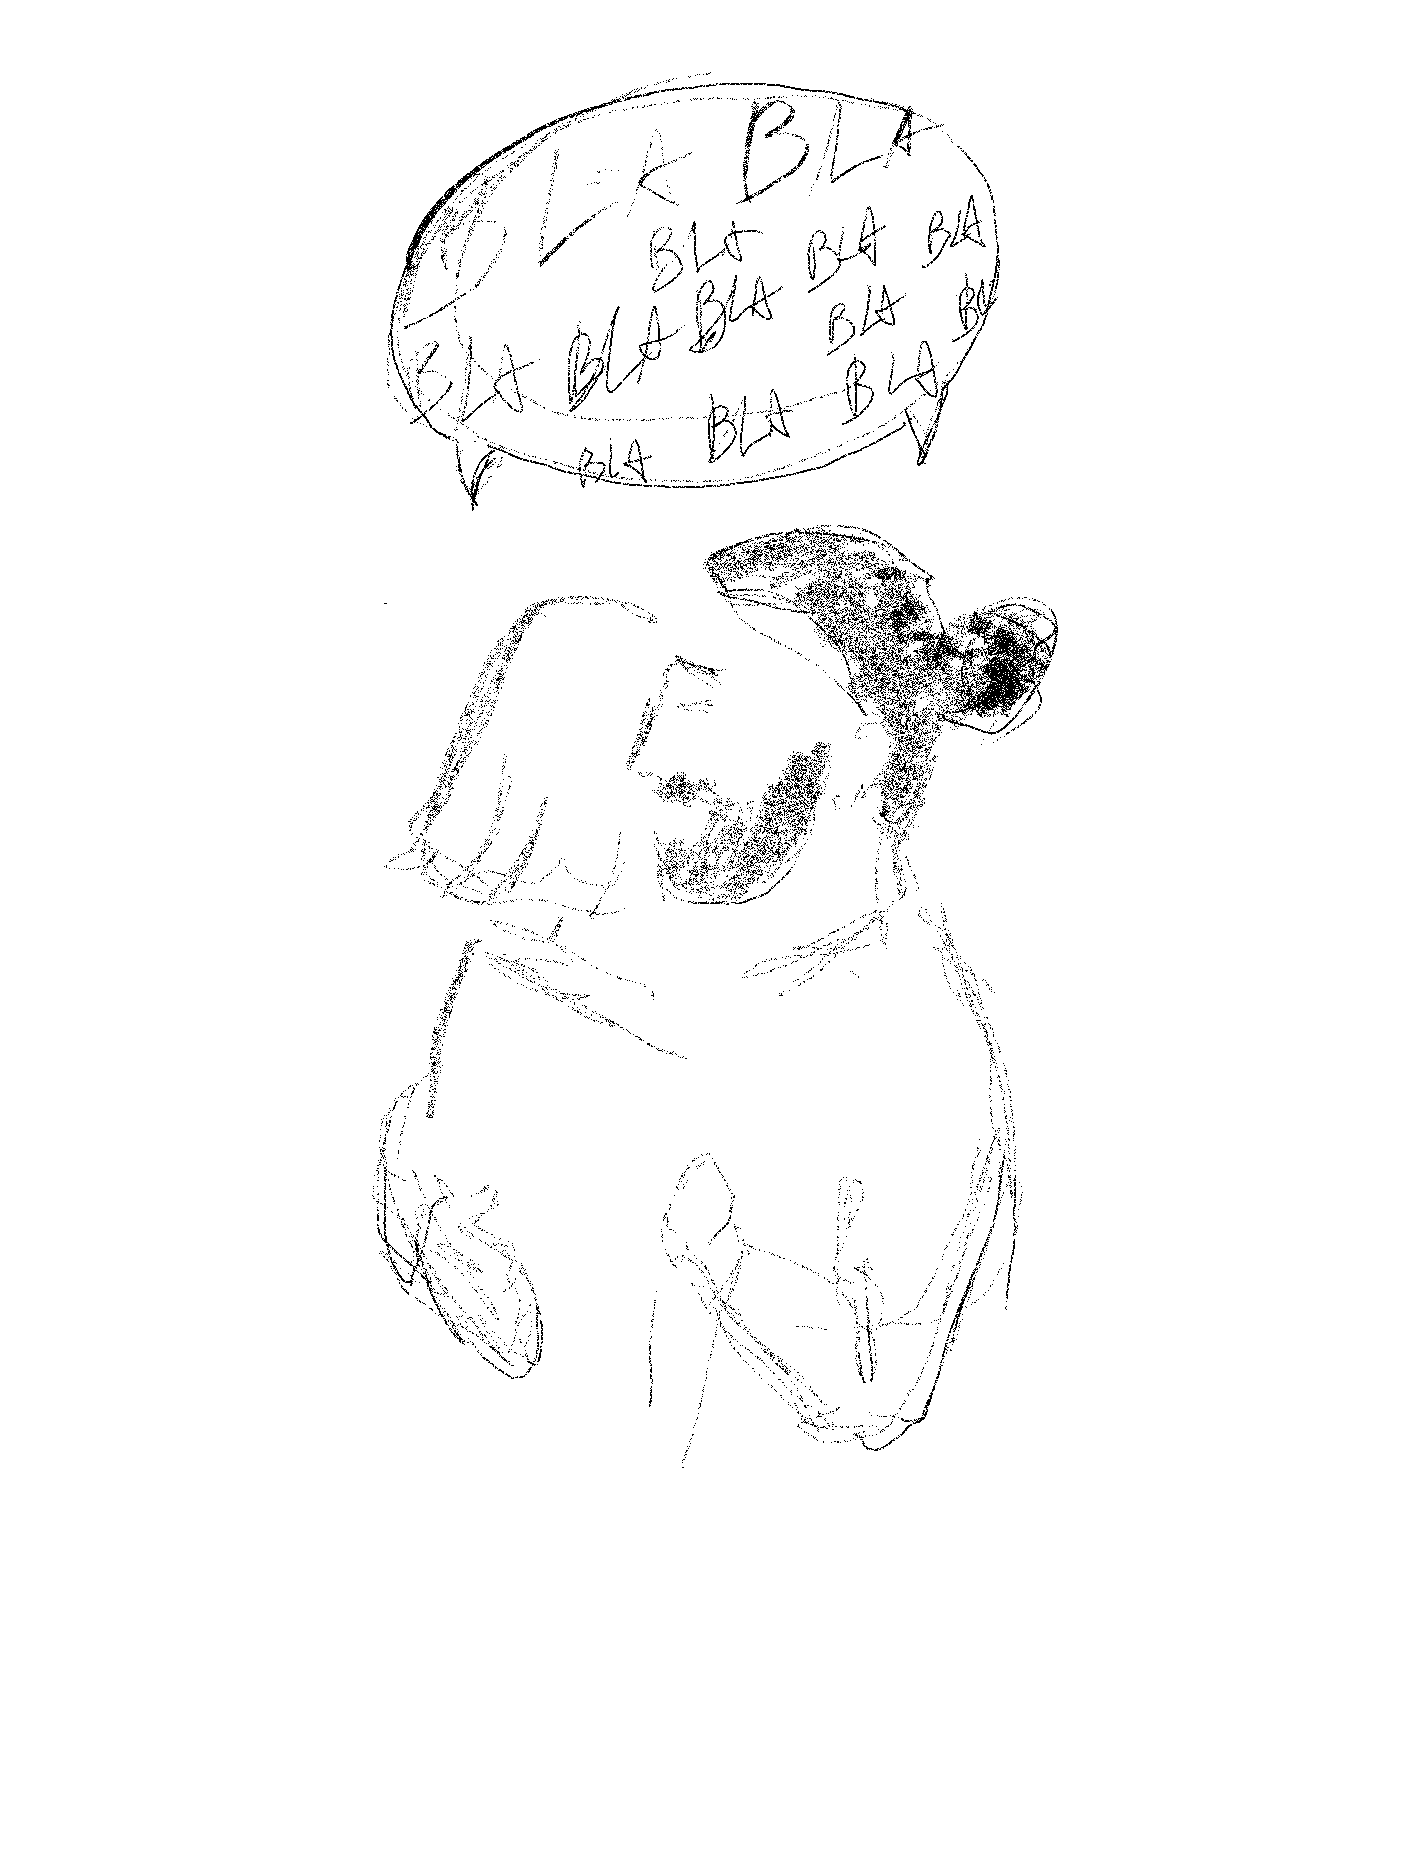 BLA BLA
BLA BLA BLA
BLA BLA BLA BLA BL
BLA BLA
BLA BLA